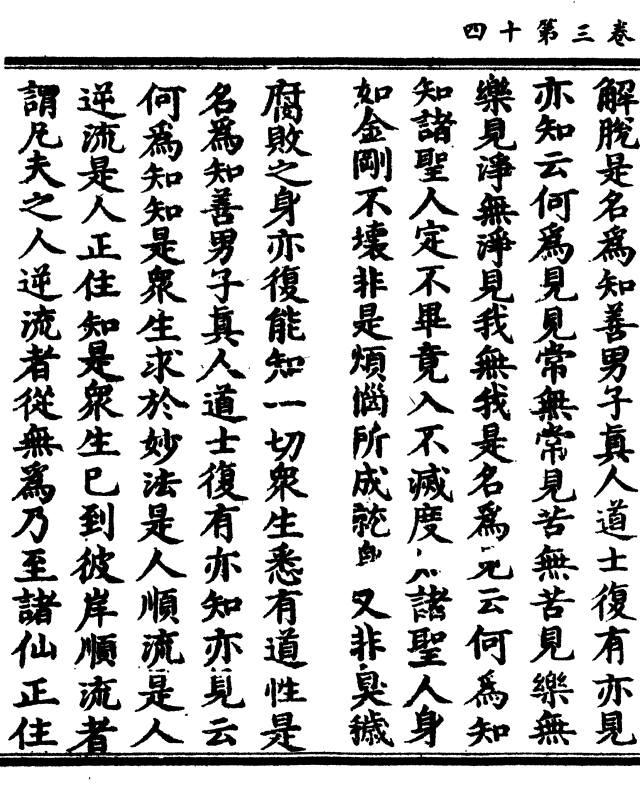 卷三第十四
解脫是名為知善男子真人道士復有亦見
亦知云何為見見常無常見苦無苦見樂無
樂見淨無淨見我無我是名為見云何為知
知諸聖人定不畢竟入不滅度 諸聖人身
如金剛不壞非是煩惱所成就 又非臭穢
腐敗之身亦復能知一切眾生悉有道性是
名為知善男子真人道士復有亦知亦見云
何為知知是眾生求於妙法是人順流是人
逆流是人正住知是眾生已到彼岸順流者
謂凡夫之人逆流者從無為乃至諸仙正住